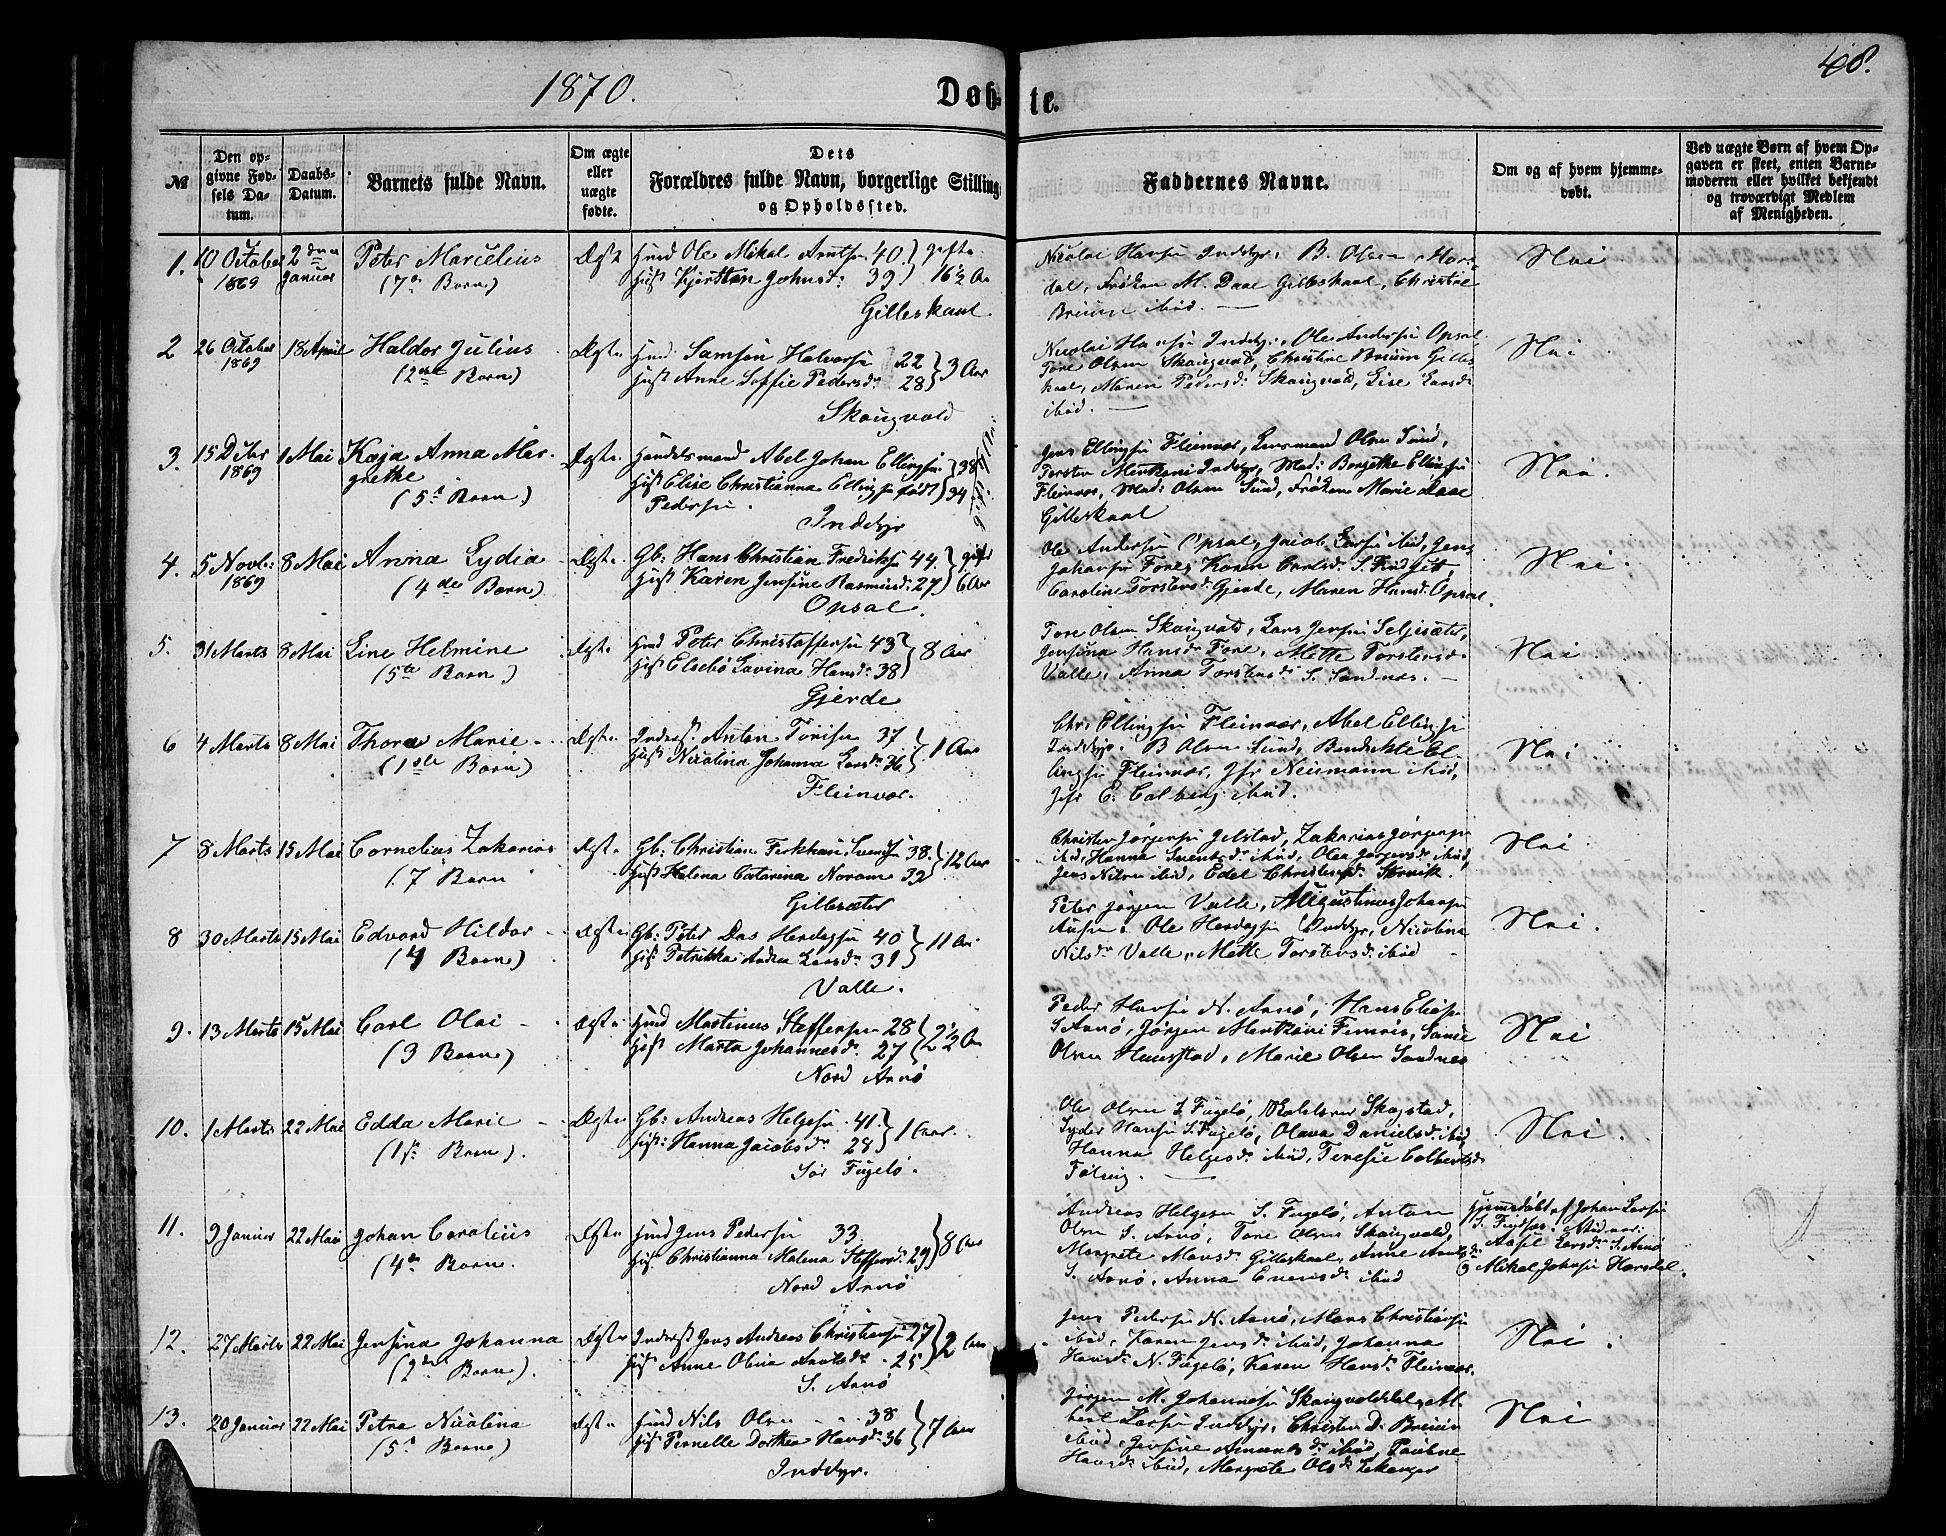 1870.
Døb-
te.
48.
№
Den op-
givne Fød-
sels Da-
tum.
Daabs-
Datum.
Barnets fulde Navn.
Om ægte
eller
uægte
fødte.
Dets
Forældres fulde Navn, borgerlige Stilling
og Opholdssted.
Faddernes Navne.
Om og af hvem hjemme-
døbt.
Ved uægte Børn af hvem Op-
gaven er skeet, enten Barne-
moderen eller hvilket bekjendt
og troværdigt Medlem
af Menigheden.
1. 10 October 2den Peter Marcelius Ægte Hmd Ole Mikal Arntsen 40 gifte
1869 Januar (7de Barn) Hust Kjersten Johnsd: 39 16½ Aar
Gilleskaal
Nicolai Hansen Inddyr, B. Olsen
Frøken M. Daae Gilleskaal, Christine
Bruun ibid.
Nei
2 26 October 18 April Haldor Julius Ægte Hmd Samson Halvorsen 22 3 Aar
1869 (2det Barn) Hust Anne Soffie Pedersd: 28
Skaugvold
Nicolai Hansen Inddyr, Ole Andersen Opsal
Tore Olsen Skaugvold, Christine Bruun Gilles-
kaal, Maren Pedersd: Skaugvold, Lise Larsd:
ibid.
Nei
3. 15 Debr 1 Mai Kaja Anna Mar- Ægte Handelsmand Abel Johan Ellingsen 38
1869 grethe Hust Elise Christianna Ellingsen født 34
(5te Barn) Pedersen.
Inddyr
Jens Ellingsen Fleinvær, Lensmand Olsen Sund,
Torsten Inddyr, Mad: Ellingsen
Fleinvær, Mad: Olsen Sund, Frøken Marie Daae
Gilleskaal
Nei.
4. 5 Novbr: 8 Mai Anna Lydia Ægte Gb: Hans Christian Fredriksen 44 gift
1869 (4de Barn) Hust Karen Jensine Rasmusd: 27 6 Aar
Opsal.
Ole Andersen Opsal, Jacob Larsen ibid, Jens
Johansen Fore, Karen Carlsd:
Caroline Torstensd: Gjerde, Maren Hansd: Opsal.
Nei.
5. 31 Marts 8 Mai Line Helmine Ægte Hmd Peter Christoffersen 43 8 Aar
(5te Barn) Hust Elsebø Lavina Hansd: 38
Gjerde
Tore Olsen Skaugvold, Lars Jensen Seljesæter,
Jensina Hansd: Fore, Mette Torstensd:
Valle, Anna Torstensd: S. Sandnes.
Nei
6 4 Marts 8 Mai Thora Marie Ægte Inderst. Anton 37 1 Aar
(1ste Barn) Hust Nicolina Johanna Larsd:
Fleinvær.
Chr. Ellingsen Fleinvær, Abel Ellingsen
Inddyr, B Olsen Sund, Bendikte El-
lingsen Fleinvær, Jfr Neumann ibid,
Jfr E. Colberg ibid.
Nei
7 8 Marts 15 Mai Cornelius Zakarias Ægte Gb: Christian 38. 12 Aar
(7 Barn Hust Helena Catarina 39
Gillesæter
Christen Jørgensen Jelstad, Zakarias Jørgensen
ibid, Hanna ibid, Olea Jørgensd: ibid,
Jens Nilsen ibid, Edel Christensd: Storvik.
Nei
8 30 Marts 15 Mai Edvard Hildor Ægte Gb: Peter Das 40 11 Aar
(4 Barn) Hust Petrikka Andrea Larsd: 39
Valle.
Peter Jørgen Valle, Augustinus Johansen
Ole Inddyr, Nicolina
Nilsd: Valle, Mette Torstensd: ibid
Nei.
9. 13 Marts 15 Mai Carl Olai Ægte Hmd Martinus Steffensen 28 2½ Aar
(3 Barn) Hust Marta Johannesd: 27
Nord Arnø
Peder Hansen N. Arnø, Hans Eliasen
S Arnø, Jørgen
Olsen Marie Olsen Sandnes
Nei
10. 1 Marts 22 Mai Edda Marie Ægte Gb: Andreas Helgesen 41 1 Aar.
(1ste Barn). Hust: Hanna Jacobsd: 28
Sør Fugelø.
Ole Olsen S. Fugelø, Skogstad,
Hansen S. Fugelø, Olava Danielsd: ibid,
Hanna Helgesd: ibid, Teresie Colbensd:
Nei.
11. 9 Januar 22 Mai Johan Carolius Ægte Hmd Jens Pedersen 33 8 Aar
(4de Barn. Hust Christianna Malena Steffensd: 29
Nord Arnø
Andreas Helgesen S. Fugelø, Anton
Olsen S. Arnø, Tore Olsen Skaugvold,
Margrete Hansd: Gilleskaal, Anne
S. Arnø, Anna Evensd: ibid
Hjemmedøbt af Johan Larsen
Larsd: S. Arnø
Mikal Johnsen
12. 27 Marts 22 Mai Jensina Johanna Ægte Inderst Jens Andreas Christiansen 27 2 Aar
(2det Barn). Hust Anne Olina 25
S. Arnø
Jens Pedersen N. Arnø, Hans Christiansen
ibid, Karen Jensd: ibid, Johanna
Hansd: N. Fugelø, Karen Hansd: Fleinvær.
Nei.
13. 20 Januar 22 Mai Petra Nicolina Ægte Hmd Nils Olsen 38 7 Aar
(5te Barn) Hust Pernelle Dorthea Hansd: 36
Inddyr.
Jørgen M. Johannesen Al-
bert Larsen Inddyr, Christen D. Bruun
ibid, Jensine ibid, Pauline
Hansd: ibid, Margrete Olsd:
Nei